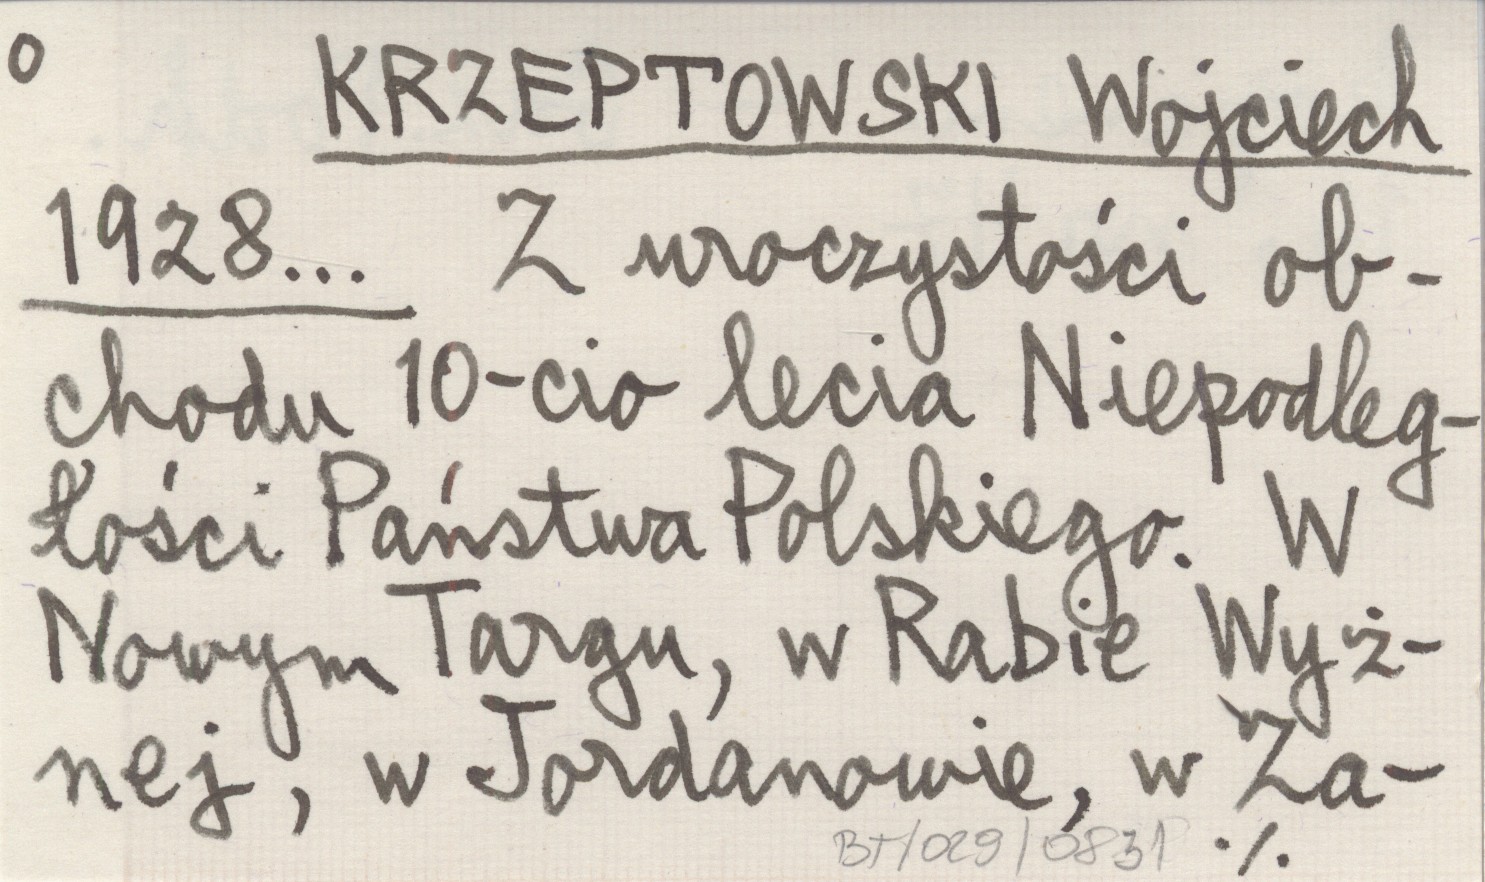 o KRZEPTOWSKI Wojciech
1928... Z uroczystości ob-
chodu 10-cio lecia Niepodleg-
łości Państwa Polskiego. W
Nowym Targu, w Rabie Wyż-
nej, w Jordanowie, w Za-
BT/029/0831P ./.